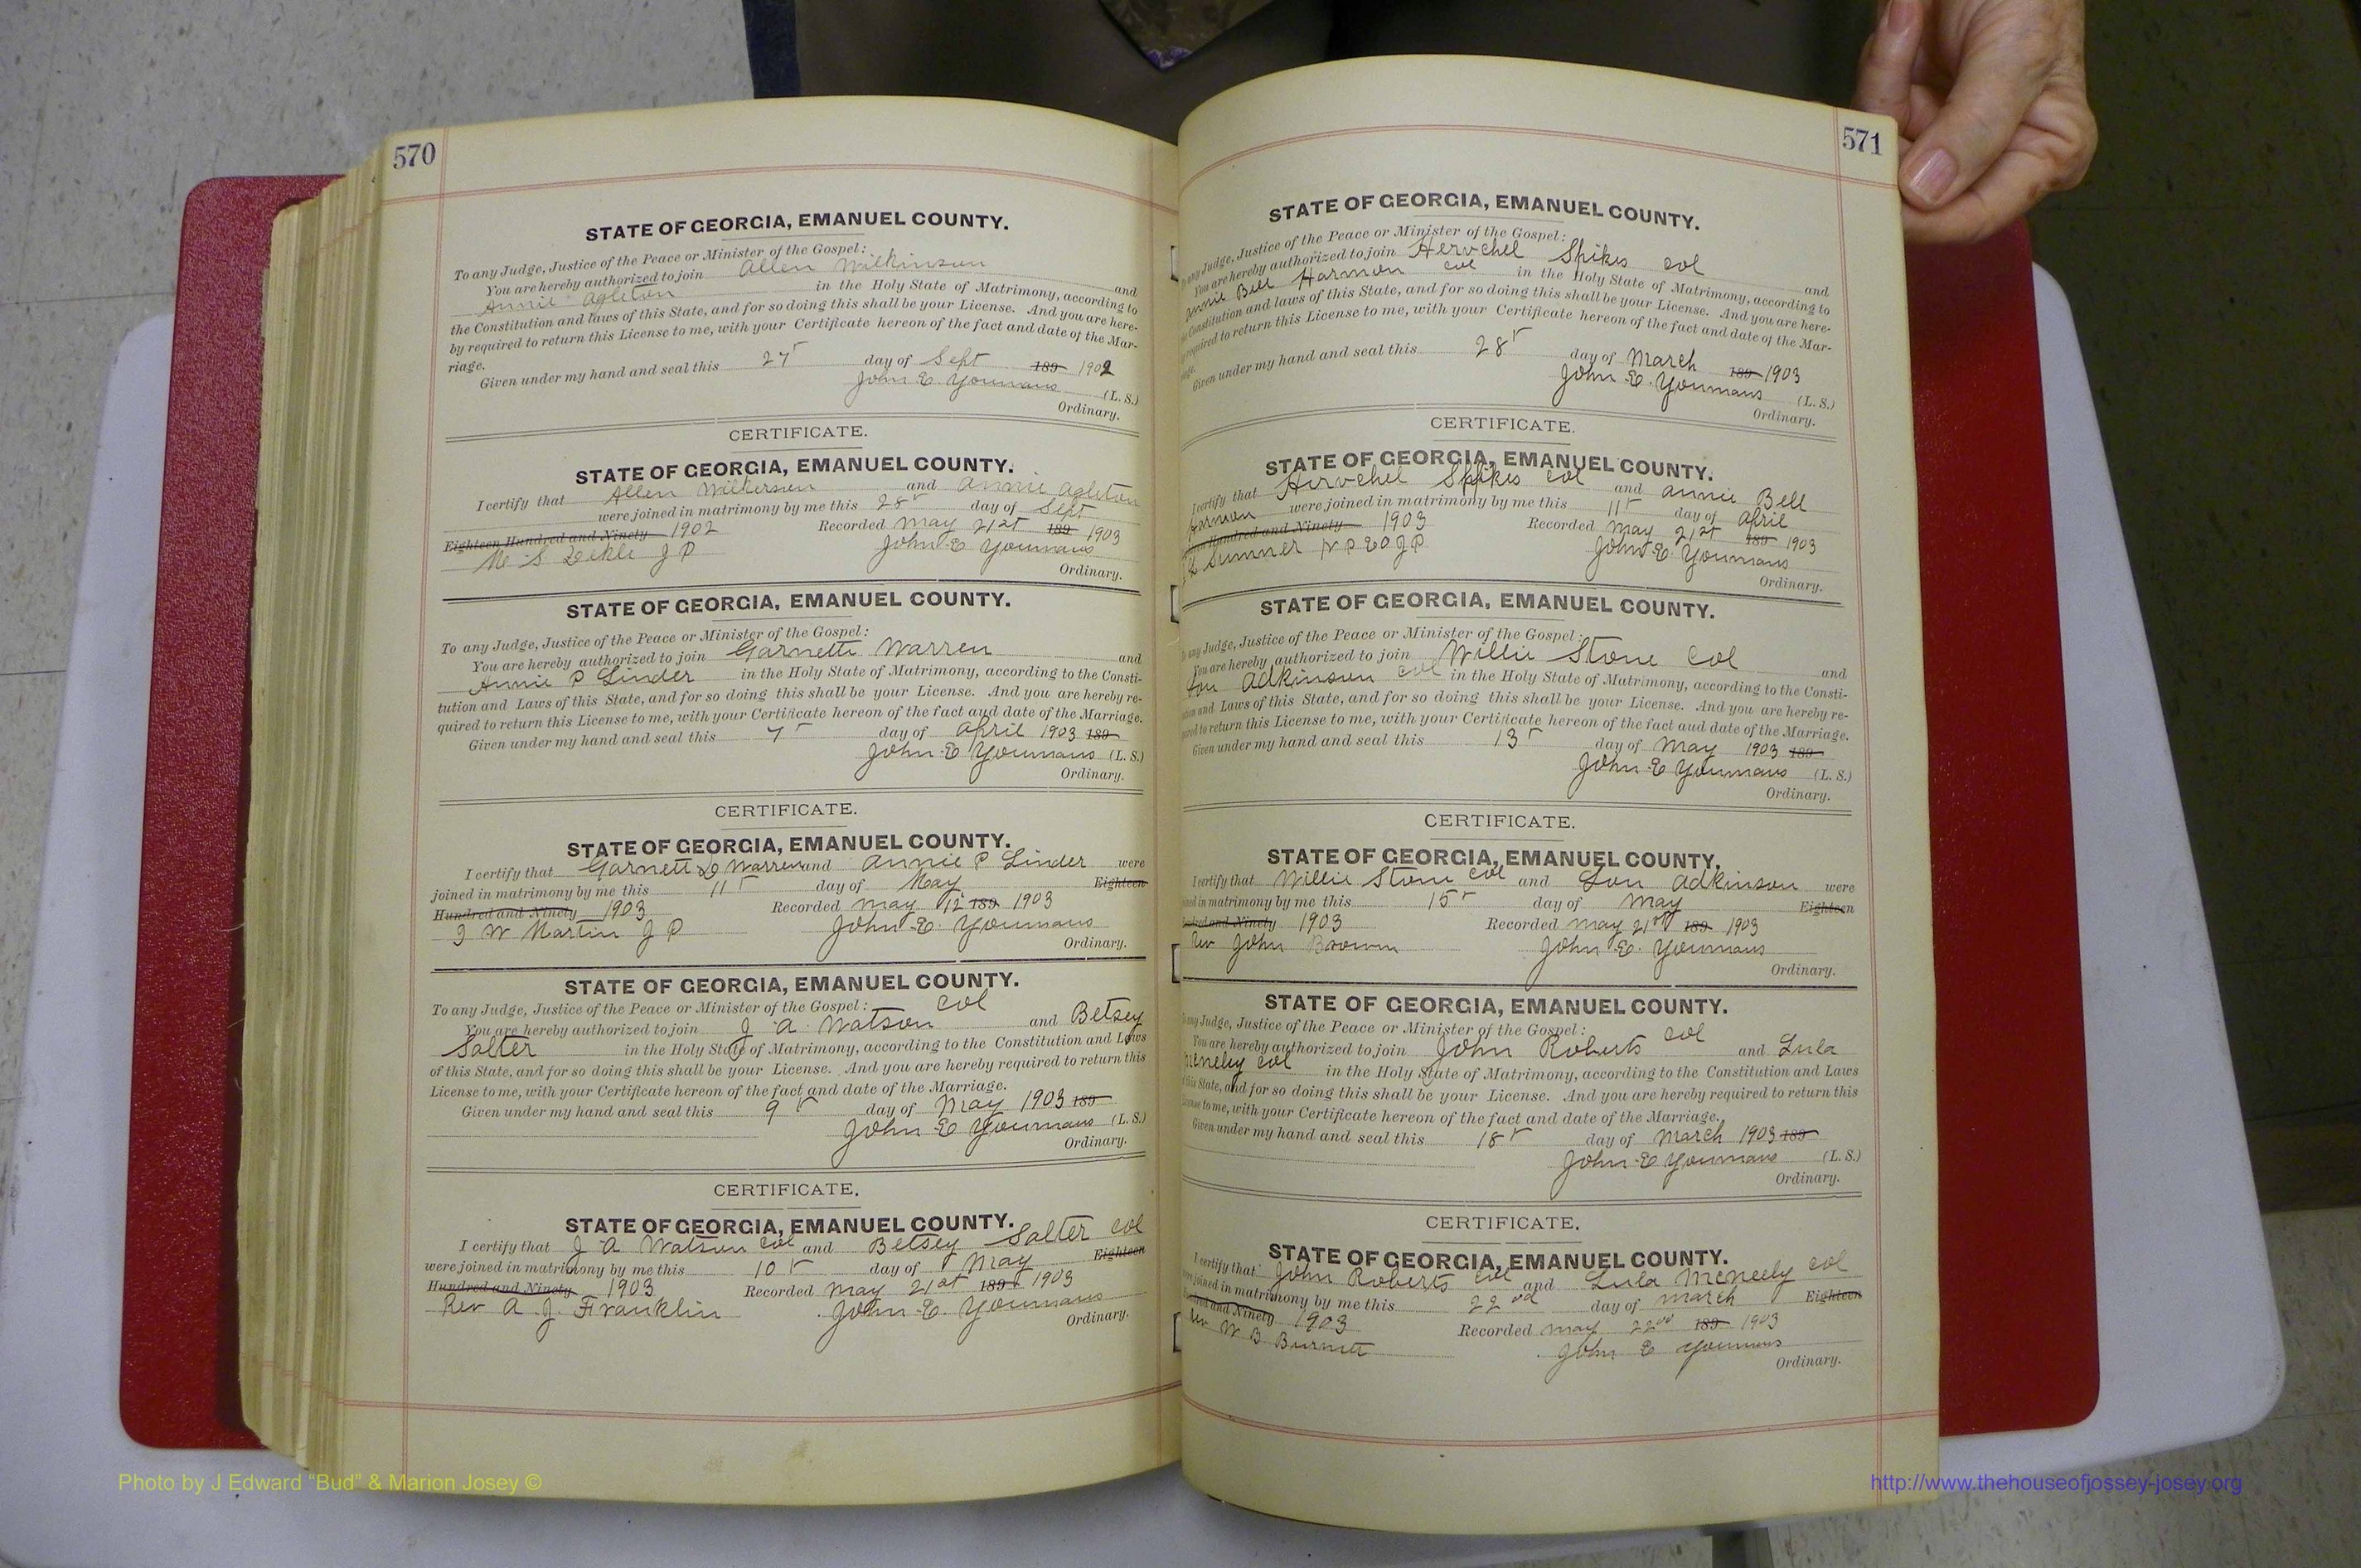 570
STATE OF GEORGIA, EMANUEL COUNTY.
To any Judge, Justice of the Peace or Minister of the Gospel:
You are hereby authorized to join Allen Wilkinson and
Annie Agleton in the Holy State of Matrimony, according to
the Constitution and laws of this State, and for so doing this shall be your License. And you are here-
by required to return this License to me, with your Certificate hereon of the fact and date of the Mar-
riage.
Given under my hand and seal this 27 day of Sept 189 1902
John E Youmans (L. S.)
Ordinary.
CERTIFICATE.
STATE OF GEORGIA, EMANUEL COUNTY.
I certify that Allen Wilkerson and Annie Agleton
were joined in matrimony by me this 28 day of Sept
Eighteen Hundred and Ninety 1902 Recorded May 21st 189 1903
M S Dekle J P John E Youmans
Ordinary.
STATE OF GEORGIA, EMANUEL COUNTY.
To any Judge, Justice of the Peace or Minister of the Gospel:
You are hereby authorized to join Garnett Warren and
Annie P Linder in the Holy State of Matrimony, according to the Consti-
tution and Laws of this State, and for so doing this shall be your License. And you are hereby re-
quired to return this License to me, with your Certificate hereon of the fact and date of the Marriage.
Given under my hand and seal this 7 day of April 1903 189
John E Youmans (L. S.)
Ordinary.
CERTIFICATE.
STATE OF GEORGIA, EMANUEL COUNTY.
I certify that Garnett Warren and Annie P Linder were
joined in matrimony by me this 11 day of May Eighteen
Hundred and Ninety 1903 Recorded May 12 189 1903
W Martin J P John E. Youmans
Ordinary.
STATE OF GEORGIA, EMANUEL COUNTY.
To any Judge, Justice of the Peace or Minister of the Gospel: col
You are hereby authorized to join J A Watson and Betsey
Salter in the Holy State of Matrimony, according to the Constitution and Laws
of this State, and for so doing this shall be your License. And you are hereby required to return this
License to me, with your Certificate hereon of the fact and date of the Marriage.
Given under my hand and seal this 9 day of May 1903 189
John E Youmans (L. S.)
Ordinary.
CERTIFICATE.
STATE OF GEORGIA, EMANUEL COUNTY.
I certify that J A Watson col and Betsey Salter col
were joined in matrimony by me this 10 day of May Eighteen
Hundred and Ninety 1903 Recorded May 21st 189 1903
Rev A. J. Franklin John E. Youmans
Ordinary.
571
STATE OF GEORGIA, EMANUEL COUNTY.
any Judge, Justice of the Peace or Minister of the Gospel:
You are hereby authorized to join Hervchel Spikes col and
Annie Bell Harmon col in the Holy State of Matrimony, according to
Constitution and laws of this State, and for so doing this shall be your License. And you are here-
required to return this License to me, with your Certificate hereon of the fact and date of the Mar-
Given under my hand and seal this 28 day of March 189 1903
John E. Youmans (L. S.)
Ordinary.
CERTIFICATE.
STATE OF GEORGIA, EMANUEL COUNTY.
I certify that Hervchel Spikes col and Annie Bell
Harmon were joined in matrimony by me this 11 day of April
Hundred and Ninety 1903 Recorded May 21st 189 1903
Sumner John E. Youmans
Ordinary.
STATE OF GEORGIA, EMANUEL COUNTY.
any Judge, Justice of the Peace or Minister of the Gospel:
You are hereby authorized to join Willie Stone col and
Lou Adkinson col in the Holy State of Matrimony, according to the Consti-
and Laws of this State, and for so doing this shall be your License. And you are hereby re-
to return this License to me, with your Certificate hereon of the fact and date of the Marriage.
Given under my hand and seal this 13 day of May 1903 189
John E Youmans (L. S.)
Ordinary.
CERTIFICATE.
STATE OF GEORGIA, EMANUEL COUNTY.
I certify that Willie Stone col and Lou Adkinson were
in matrimony by me this 15 day of May Eighteen
and Ninety 1903 Recorded May 21 189 1903
Rev John Brown John E. Youmans
Ordinary.
STATE OF GEORGIA, EMANUEL COUNTY.
any Judge, Justice of the Peace or Minister of the Gospel:
You are hereby authorized to join John Roberts col and Lula
McNeely col in the Holy State of Matrimony, according to the Constitution and Laws
this State, and for so doing this shall be your License. And you are hereby required to return this
to me, with your Certificate hereon of the fact and date of the Marriage.
Given under my hand and seal this 18 day of March 1903 189
John E Youmans (L. S.)
Ordinary.
CERTIFICATE.
STATE OF GEORGIA, EMANUEL COUNTY.
I certify that John Roberts col and Lula McNeely col
joined in matrimony by me this 22nd day of March Eighteen
and Ninety 1903 Recorded May 22nd 189 1903
Rev W B Burnett John E Youmans
Ordinary.
Photo by J Edward “Bud” & Marion Josey ©
http://www.thehouseofjossey-josey.org